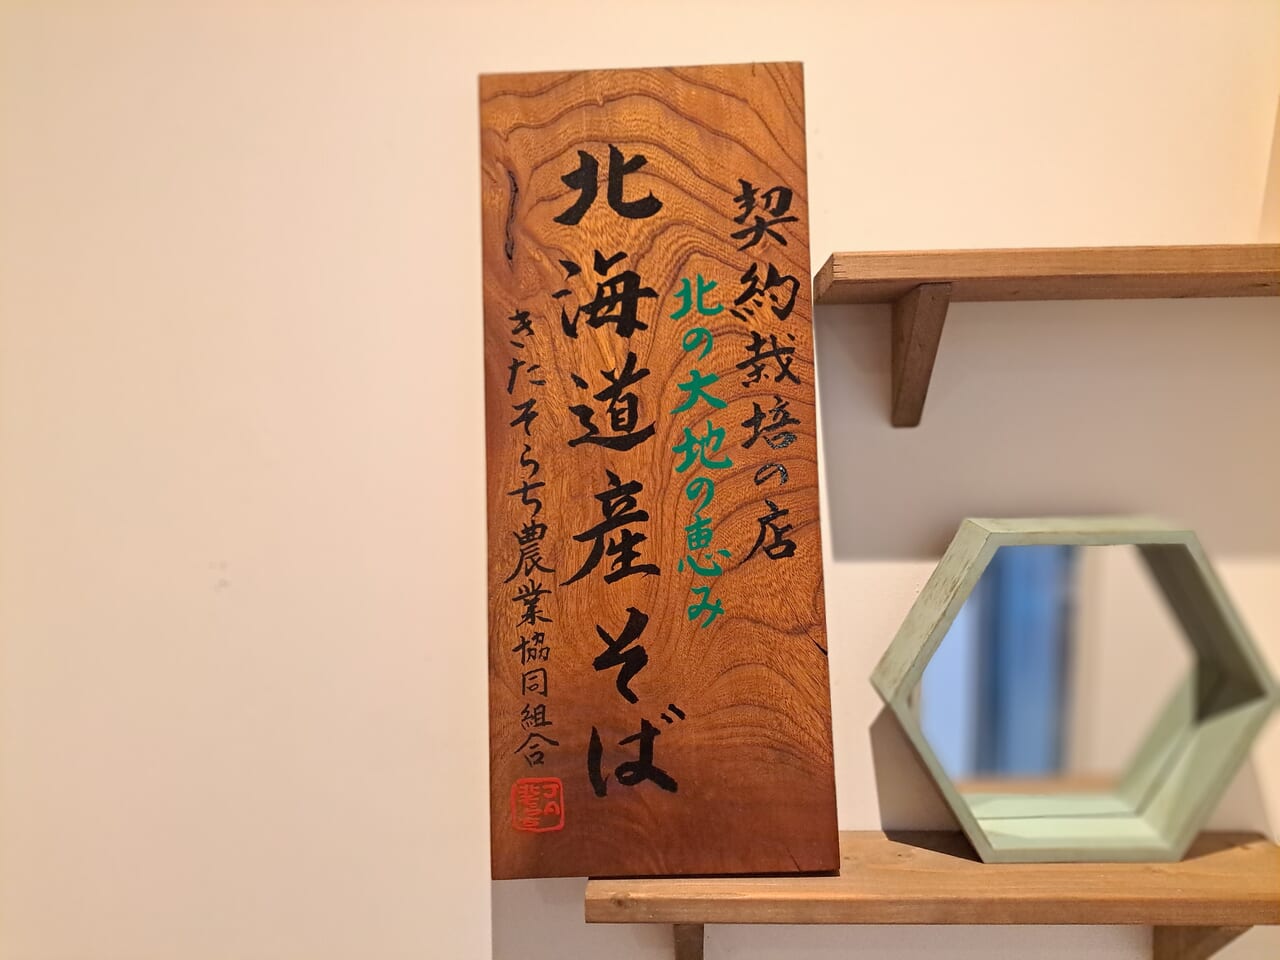 契約栽培の店
北の大地の恵み
北海道産そば
きたそらち農業協同組合
JA